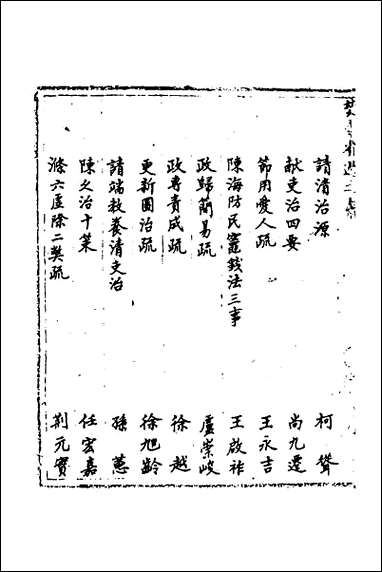 請清治源 柯聳
献吏治四要 尚九遷
節用愛人疏 王永吉
陳海防民竈錢法三事 王啟祚
政歸簡易疏 盧崇峻
政專責成疏 徐越
更新圖治疏 徐旭齡
請端教養清吏治 孫蕙
陳久治十策 任宏嘉
滌六虛除二獘疏 荆元實